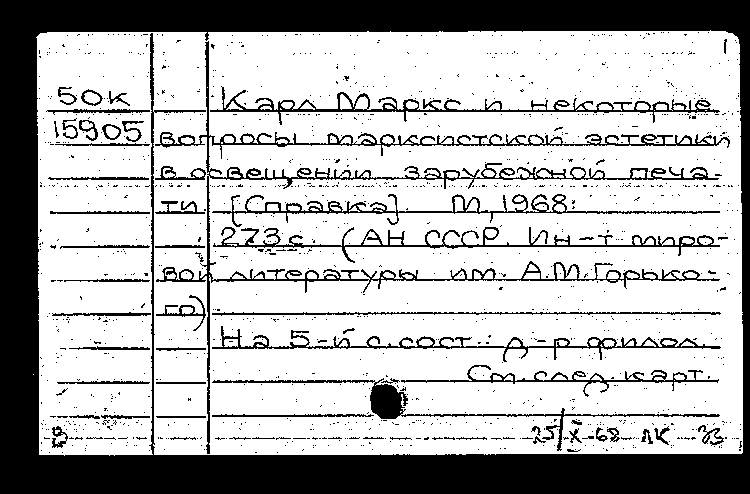 50К Карл Маркс и некоторые
15905 вопросы марксистской эстетики
в освещении зарубежной печа-
ти [Справка]. М., 1968.
273 с. (АН СССР. Ин-т миро-
вой литературы им. А.М. Горько-
го)
На 5-й с. сост.: д-р филол.
См. след. карт.
25/X-68 ЛК